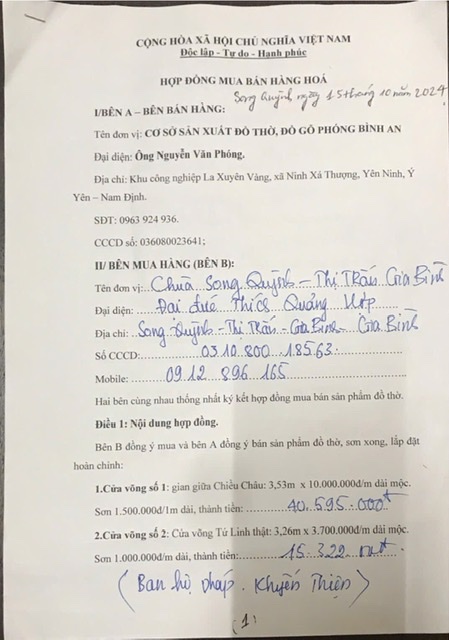 CỘNG HÒA XÃ HỘI CHỦ NGHĨA VIỆT NAM
Độc lập - Tự do - Hạnh phúc
HỢP ĐỒNG MUA BÁN HÀNG HOÁ
Song Quỳnh ngày 15 tháng 10 năm 2024
I/BÊN A – BÊN BÁN HÀNG:
Tên đơn vị: CƠ SỞ SẢN XUẤT ĐỒ THỜ, ĐỒ GỖ PHÓNG BÌNH AN
Đại diện: Ông Nguyễn Văn Phóng.
Địa chỉ: Khu công nghiệp La Xuyên Vàng, xã Ninh Xá Thượng, Yên Ninh, Ý
Yên – Nam Định.
SĐT: 0963 924 936.
CCCD số: 036080023641;
II/ BÊN MUA HÀNG (BÊN B):
Tên đơn vị: Chùa Song Quỳnh – Thị Trấn Gia Bình
Đại diện: Đại đức Thích Quảng Hợp
Địa chỉ: Song Quỳnh – Thị Trấn – Gia Bình – Gia Bình
Số CCCD: 0310.800 18563
Mobile: 0912 896 165
Hai bên cùng nhau thống nhất ký kết hợp đồng mua bán sản phẩm đồ thờ.
Điều 1: Nội dung hợp đồng.
Bên B đồng ý mua và bên A đồng ý bán sản phẩm đồ thờ, sơn xong, lắp đặt
hoàn chỉnh:
1.Cửa võng số 1: gian giữa Chiều Châu: 3,53m x 10.000.000đ/m dài mộc.
Sơn 1.500.000đ/1m dài, thành tiền: 40.595.000đ
2.Cửa võng số 2: Cửa võng Tứ Linh thật: 3,26m x 3.700.000đ/m dài mộc.
Sơn 1.000.000đ/m dài, thành tiền: 15.322
(Ban hộ pháp. Khuyến Thiện)
(1)